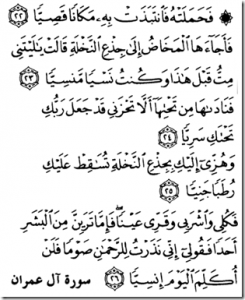 ۞ فَحَمَلَتْهُ فَٱنتَبَذَتْ بِهِۦ مَكَانًا قَصِيًّا ٢٢
فَأَجَآءَهَا ٱلْمَخَاضُ إِلَىٰ جِذْعِ ٱلنَّخْلَةِ قَالَتْ يَـٰلَيْتَنِى
مِتُّ قَبْلَ هَـٰذَا وَكُنتُ نَسْيًا مَّنسِيًّا ٢٣
فَنَادَىٰهَا مِن تَحْتِهَآ أَلَّا تَحْزَنِى قَدْ جَعَلَ رَبُّكِ
تَحْتَكِ سَرِيًّا ٢٤
وَهُزِّىٓ إِلَيْكِ بِجِذْعِ ٱلنَّخْلَةِ تُسَـٰقِطْ عَلَيْكِ
رُطَبًا جَنِيًّا ٢٥
فَكُلِى وَٱشْرَبِى وَقَرِّى عَيْنًا ۖ فَإِمَّا تَرَيِنَّ مِنَ ٱلْبَشَرِ
أَحَدًا فَقُولِىٓ إِنِّى نَذَرْتُ لِلرَّحْمَـٰنِ صَوْمًا فَلَنْ
أُكَلِّمَ ٱلْيَوْمَ إِنسِيًّا ٢٦ سورة آل عمران